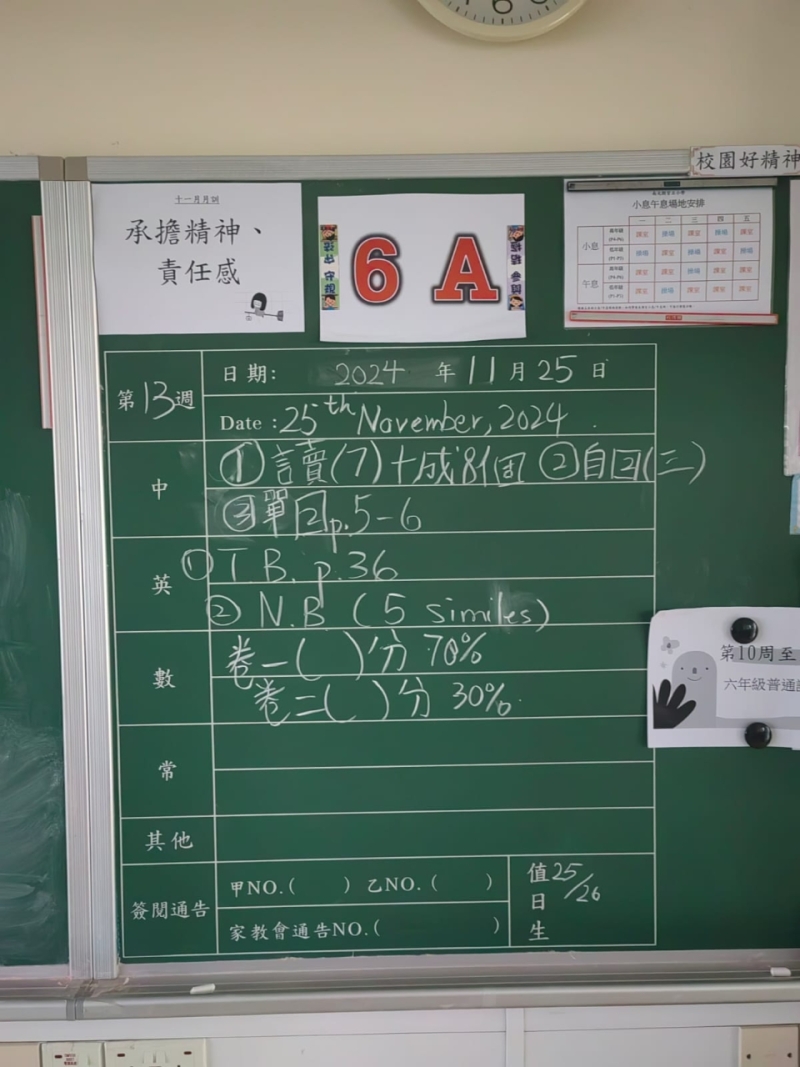 校園好精神
十一月月訓
承擔精神、
責任感
6 A
小息午息場地安排
一 二 三 四 五
小息
課室 操場 課室 操場 課室
操場 課室 操場 課室 操場
午息
課室 操場 課室 課室 課室
課室 課室 課室 課室 課室
第13週
日期: 2024 年 11 月 25 日
Date : 25th November, 2024.
中
①讀(7)+成8個 ②自図(三)
③單図p.5-6
英
① T.B. p.36
② N.B (5 similes)
數
卷一( )分 70%
卷二( )分 30%.
常
其他
簽閱通告
甲NO.( ) 乙NO.( )
家教會通告NO.( )
值日生
25/26
第10周至
六年級普通